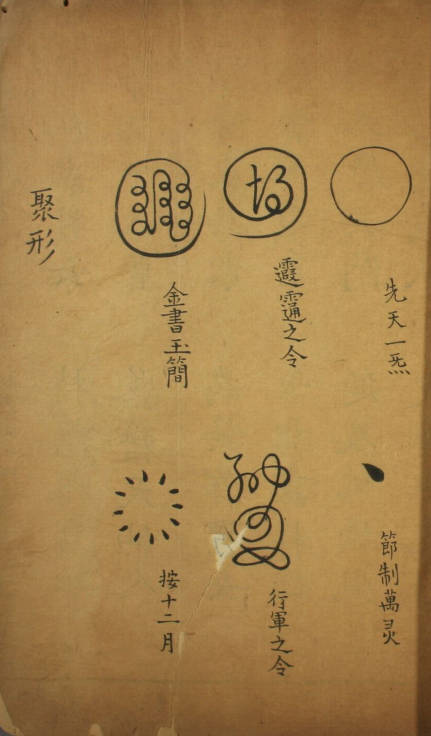 先天一炁
節制萬灵
之令
行軍之令
金書玉簡
按十二月
聚形